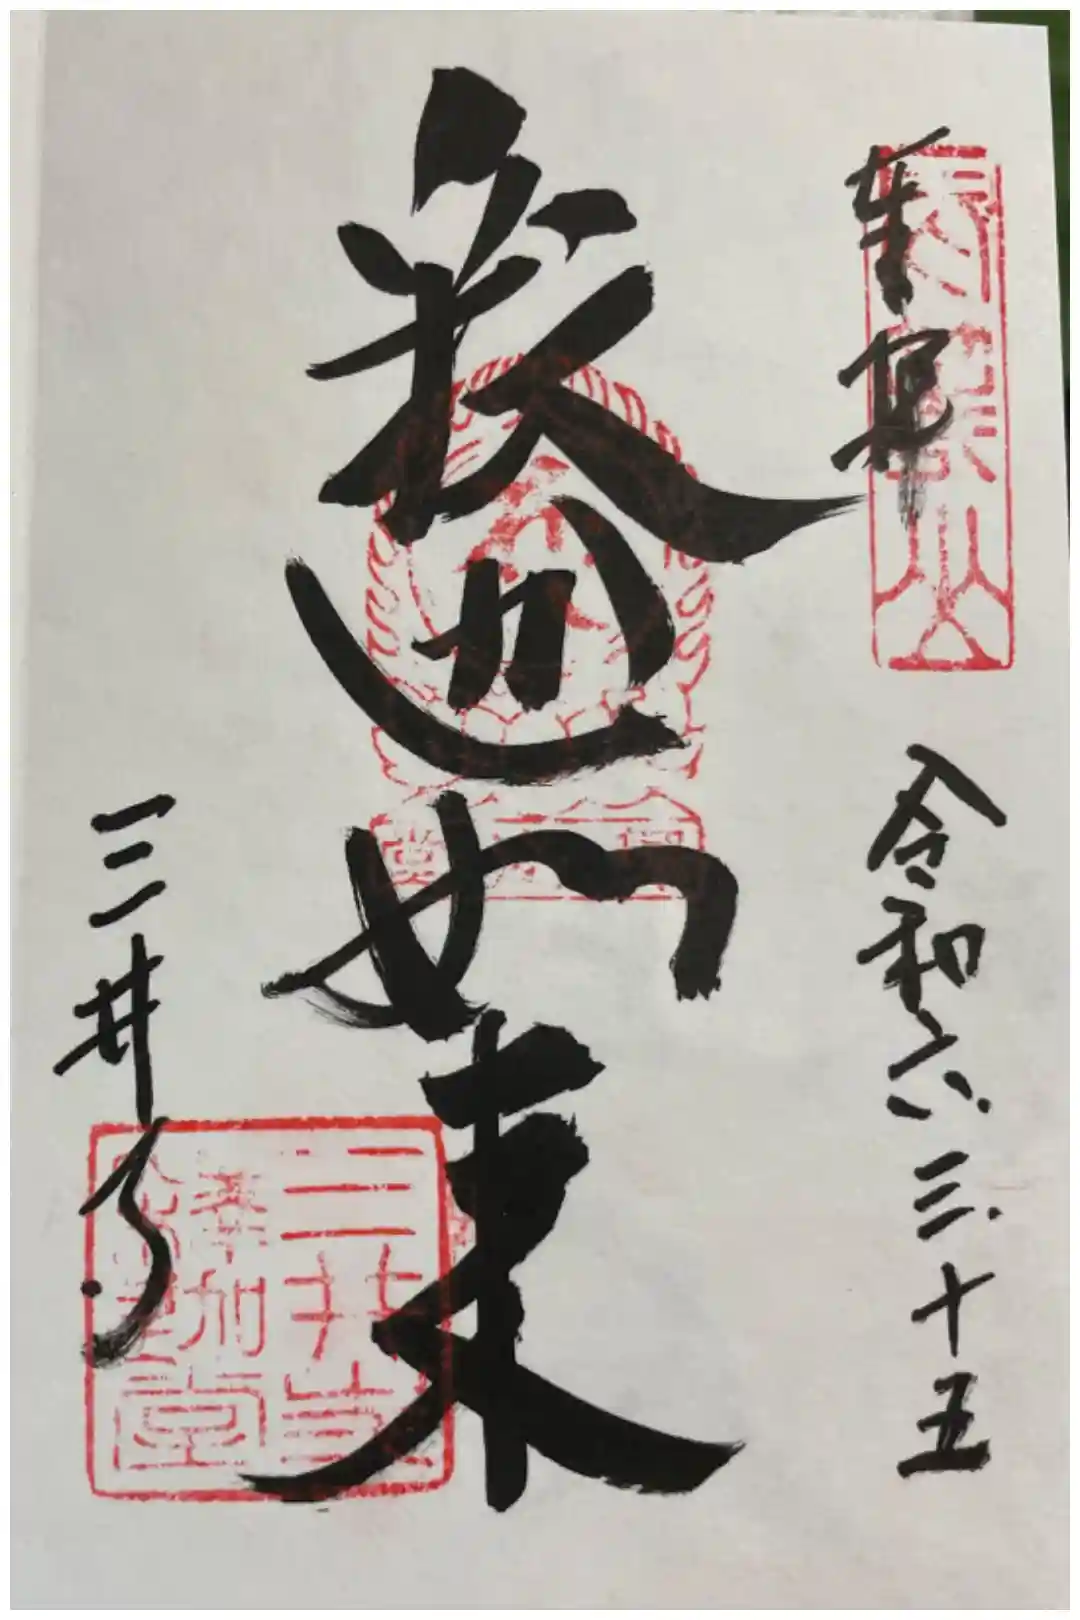 奉拝
令和六.三.十五
釈迦如来
三井寺
三井寺
釋迦堂